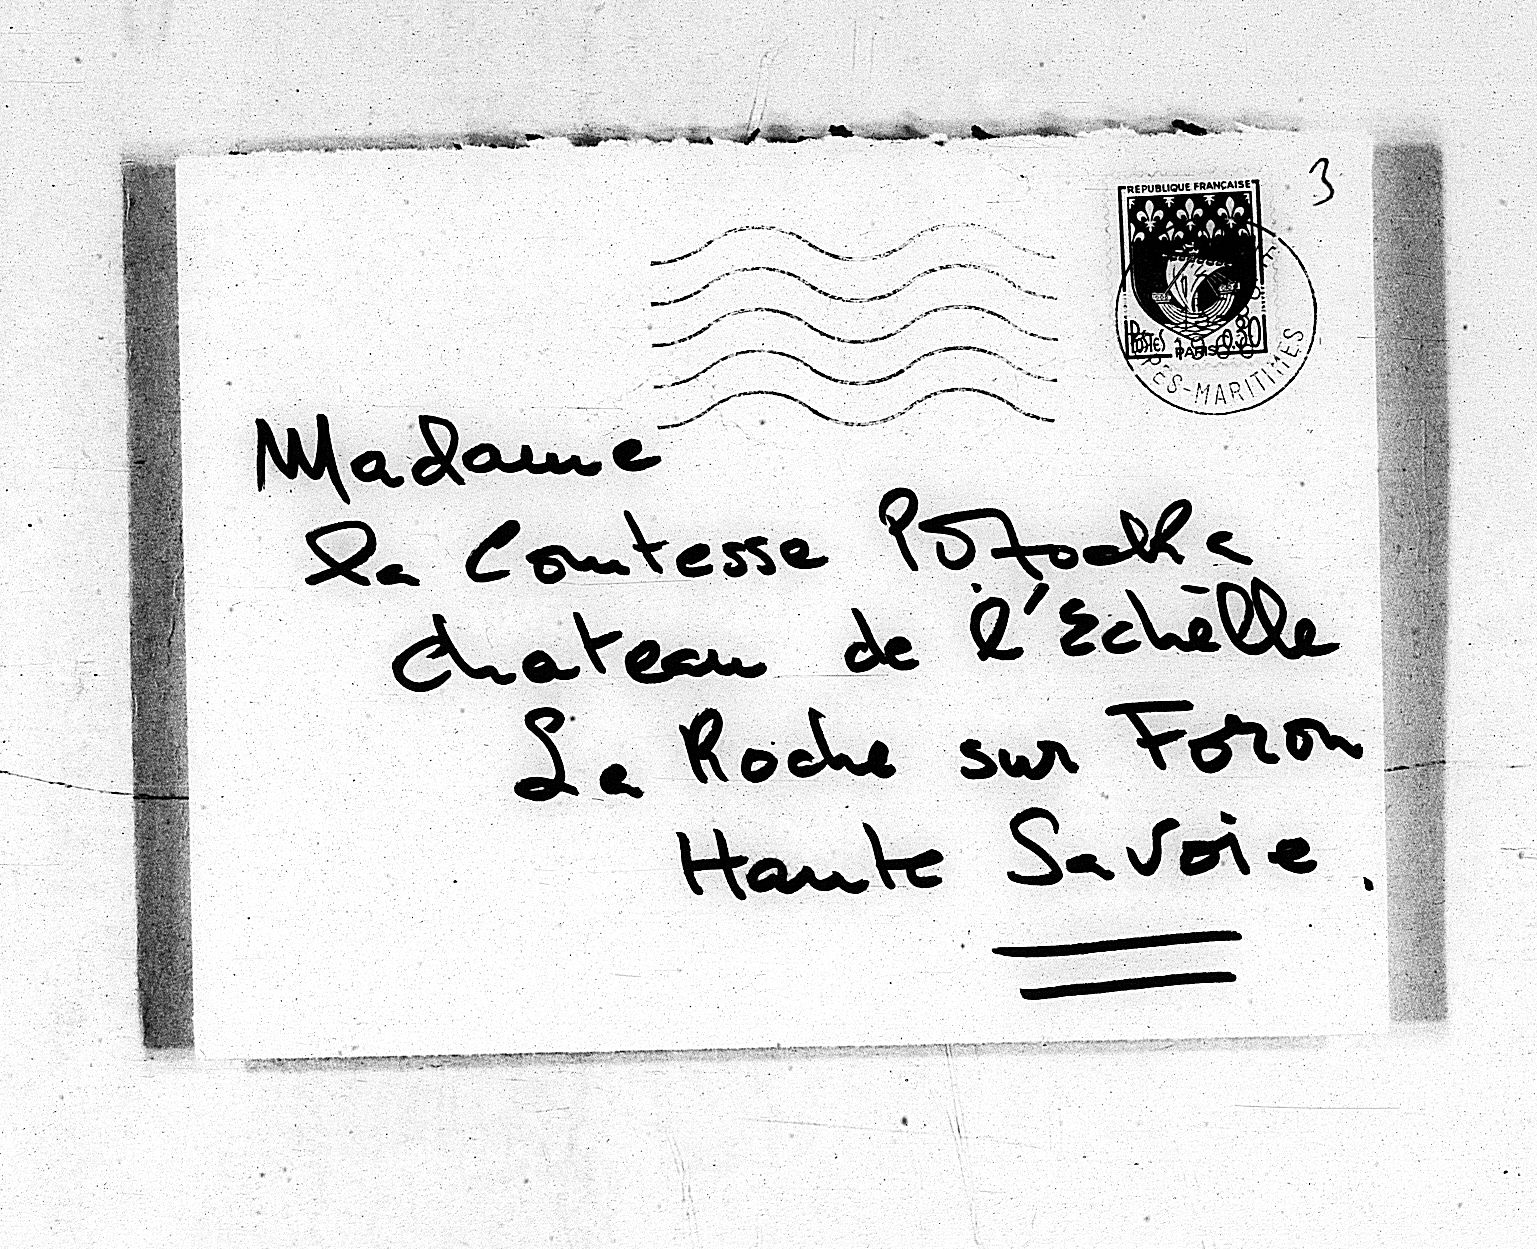 3
REPUBLIQUE FRANÇAISE
POSTES 0.30
PARIS
PES-MARITIMES
Madame
la Comtesse Potocka
chateau de l'Echèlle
La Roche sur Foron
Haute Savoie.